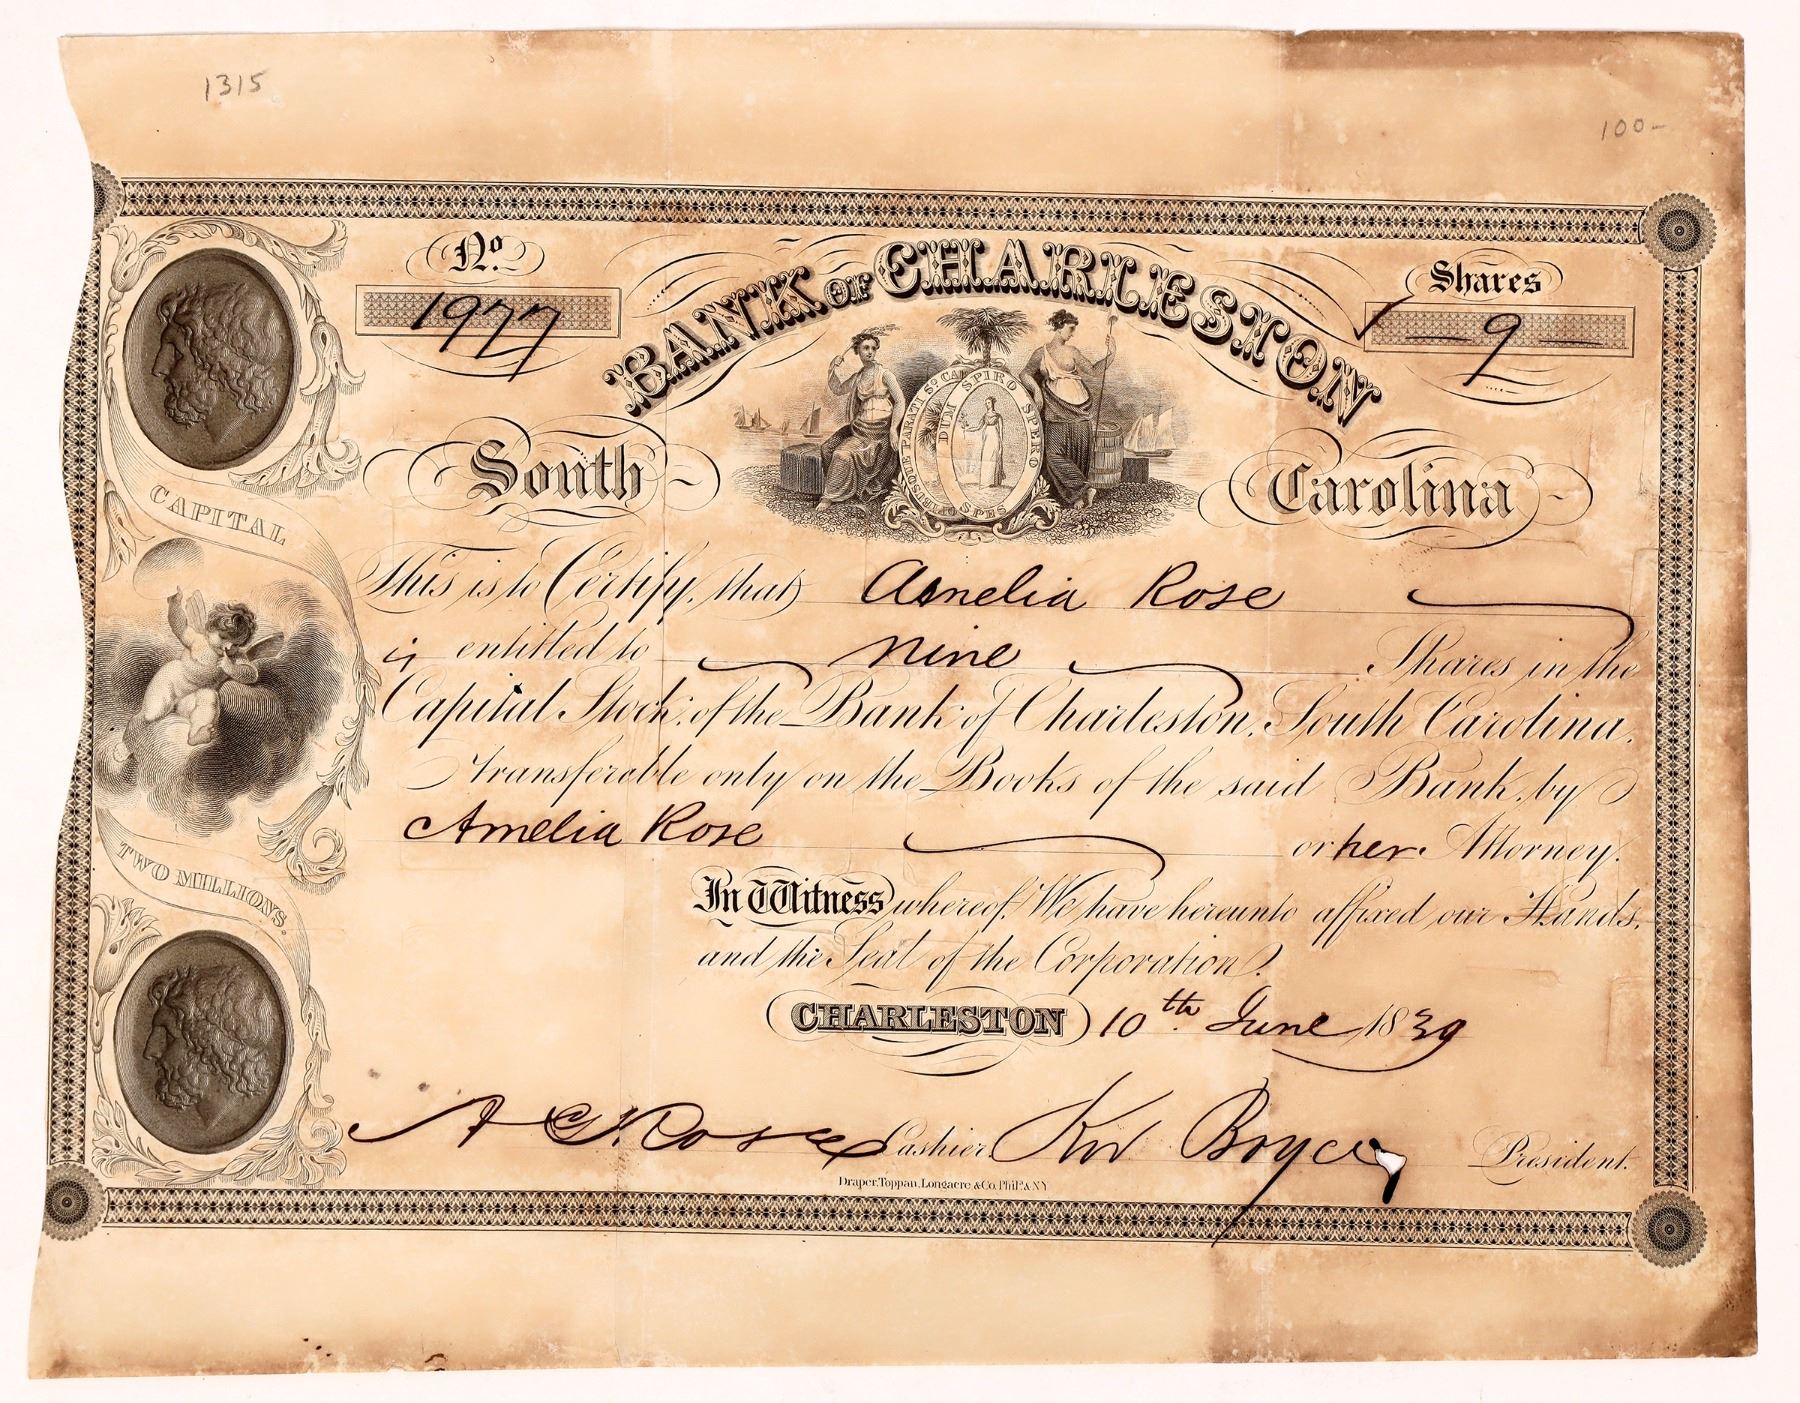 1315
100-
No.
1977
BANK OF CHARLESTON
Shares
9
South Carolina
ANIMIS OPIBUSQUE PARATI So CAR
DUM SPIRO SPERO SPES
CAPITAL
TWO MILLIONS.
This is to Certify, that Amelia Rose
is entitled to nine Shares in the
Capital Stock of the Bank of Charleston, South Carolina,
Transferable only on the Books of the said Bank, by
Amelia Rose or her Attorney.
In Witness whereof, We have hereunto affixed our Hands,
and the Seal of the Corporation.
CHARLESTON 10th June 1839
A G Rose Cashier Ker Boyce President.
Draper, Toppan, Longacre & Co. Phila. & N.Y.